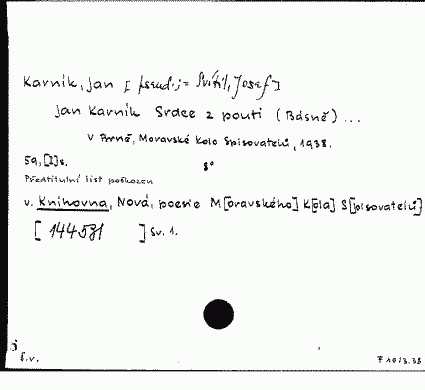 Karník, Jan [pseud. = Svítil, Josef]
Jan Karník Srdce z pouti (Básně)...
V Brně, Moravské Kolo Spisovatelů, 1938.
59, [2] s. 8°
Předtitulní list poškozen
v. Knihovna, Nová, poesie M[oravského] K[ola] S[pisovatelů]
[144581] Sv. 1.
š
f.v. F 1013.38